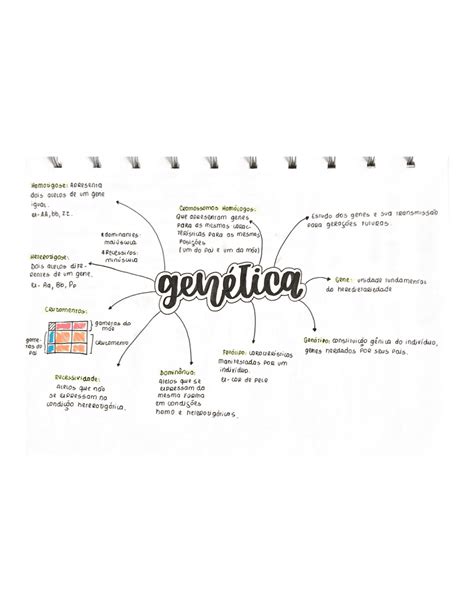 Homozigose: apresenta
dois alelos de um gene
igual.
ex- AA, bb, zz.
Cromossomos Homólogos:
que apresentam genes
para as mesmas carac-
terísticas para as mesmas
posições
(um do pai e um da mãe)
Estudo dos genes e sua transmissão
para gerações futuras.
dominantes:
maiúscula
recessivos:
minúscula
Heterozigose:
Dois alelos dife-
rentes de um gene.
ex- Aa, Bb, Pp
genética
Gene: unidade fundamental
da hereditariedade
Cruzamentos:
gametas da
mãe
cruzamento
game-
tas do
pai
Genótipo: constituição gênica do indivíduo,
genes herdados por seus pais.
Fenótipo: características
manifestadas por um
indivíduo.
ex- cor de pele
Dominância:
Alelos que se
expressam da
mesma forma
em condições
homo e heterozigóticas.
Recessividade:
Alelos que não
se expressam na
condição heterozigótica.